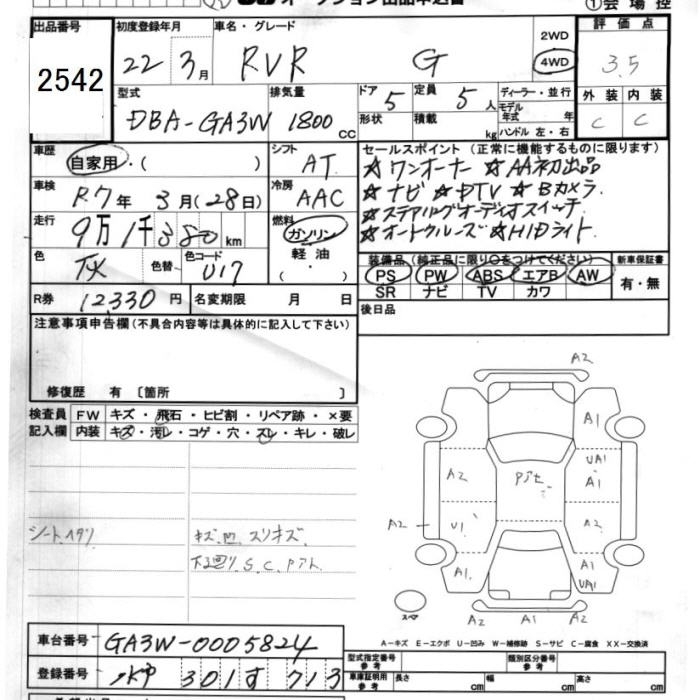 ①会場控
出品番号
2542
初度登録年月
22年 3月
車名・グレード
RVR G
2WD
4WD
評価点
3.5
外装 内装
C C
型式
DBA-GA3W
排気量
1800 cc
ドア
5
形状
定員
5人
積載
kg
ディーラー・並行
モデル年式 年
ハンドル 左・右
車歴
自家用・( )
シフト
AT
車検
R7年 3月(28日)
冷房
AAC
走行
9万1千380km
燃料
ガソリン
軽油
・( )
色
色替
色コード
U17
R券
12330円
名変期限 月 日
セールスポイント(正常に機能するものに限ります)
★ワンオーナー ★AA初出品
★ナビ ★DTV ★Bカメラ
★ステアリングオーディオスイッチ
★オートクルーズ ★HIDライト
装備品(純正品に限り○をつけてください)
PS PW ABS エアB AW
SR ナビ TV カワ
新車保証書
有・無
後日品
注意事項申告欄(不具合内容等は具体的に記入して下さい)
修復歴 有 〔箇所 〕
検査員記入欄
FW キズ・飛石・ヒビ割・リペア跡・×要
内装 キズ・汚レ・コゲ・穴・スレ・キレ・破レ
シートヘタリ
キズ.凹.スリキズ
下廻り.S.C.Pアト
A2
A1
UA1
A1
A2
A2
U1
A2
A1
A1
UA1
A2 A1 A2
スペア
A-キズ E-エクボ U-凹み W-補修跡 S-サビ C-腐食 XX-交換済
車台番号
GA3W-0005824
登録番号
301 す 713
型式指定番号 参考
類別区分番号 参考
車庫証明用 参考
長さ cm
幅 cm
高さ cm